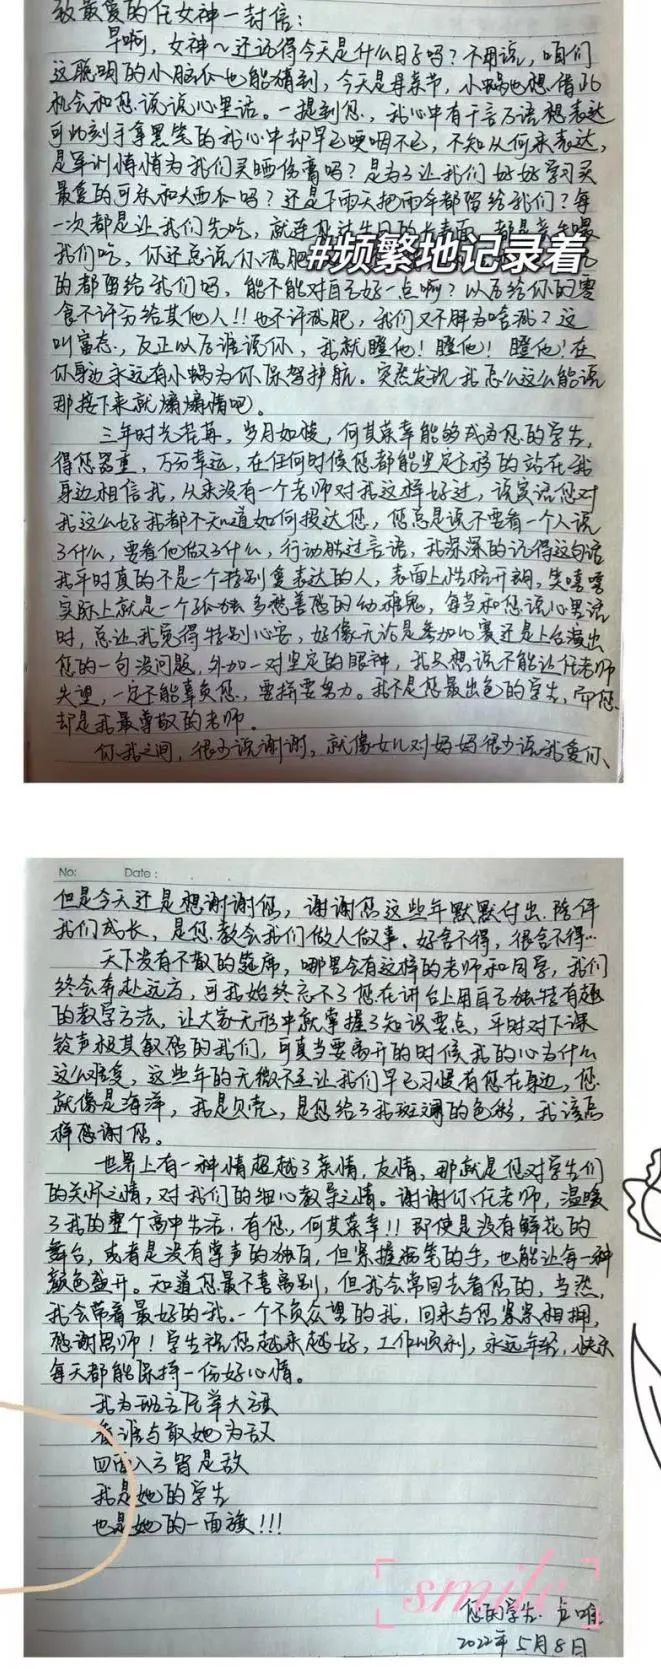 致最爱的任女神一封信：
早啊，女神～还记得今天是什么日子吗？不用说，咱们
这聪明的小脑瓜也能猜到，今天是母亲节，小蜗也想借此
机会和您说说心里话。一提到您，我心中有千言万语想表达
可此刻手拿黑笔的我心中却早已哽咽不已，不知从何来表达，
是军训悄悄为我们买晒伤膏吗？是为了让我们好好学习买
最爱的可乐和大西瓜吗？还是下雨天把雨伞都留给我们？每
一次都是让我们先吃，就连
我们吃，你还总说你减肥
#频繁地记录着
的都留给我们吗，能不能对自己好一点啊？以后给你的零
食不许分给其他人！！也不许减肥，我们又不胖为啥减？这
叫富态，反正以后谁说你，我就瞪他！瞪他！瞪他！在
你身边永远有小蜗为你保驾护航。突然发现我怎么这么能说
那接下来就煽煽情吧。
三年时光荏苒，岁月如梭，何其荣幸能够成为您的学生，
得您器重，万分幸运，在任何时候您都能坚定不移的站在我
身边相信我，从来没有一个老师对我这样好过，说实话您对
我这么好我都不知道如何报达您，您总是说不要看一个人说
了什么，要看他做了什么，行动胜过言语，我深深的记得这句话
我平时真的不是一个特别爱表达的人，表面上性格开朗，笑嘻嘻
实际上就是一个孤独多愁善感的幼稚鬼，每当和您说心里话
时，总让我觉得特别心安，好像无论是参加比赛还是上台演出
您的一句没问题，外加一对坚定的眼神，我只想说不能让任老师
失望，一定不能辜负您，要拼要努力。我不是您最出色的学生，而您
却是我最尊敬的老师。
你我之间，很少说谢谢，就像女儿对妈妈很少说我爱你、
No: Date:
但是今天还是想谢谢您，谢谢您这些年默默付出、陪伴
我们成长，是您教会我们做人做事。好舍不得，很舍不得…
天下没有不散的筵席，哪里会有这样的老师和同学，我们
终会奔赴远方，可我始终忘不了您在讲台上用自己独特有趣
的教学方法，让大家无形中就掌握了知识要点，平时对下课
铃声极其敏感的我们，可真当要离开的时候我的心为什么
这么难受，这些年的无微不至让我们早已习惯有您在身边，您
就像是海洋，我是贝壳，是您给了我斑斓的色彩，我该怎
样感谢您。
世界上有一种情超越了亲情，友情，那就是您对学生们
的关怀之情，对我们的细心教导之情。谢谢你任老师，温暖
了我的整个高中生活，有您，何其荣幸！！即使是没有鲜花的
舞台，或者是没有掌声的独白，但紧握粉笔的手，也能让每一种
颜色盛开。知道您最不喜离别，但我会常回去看您的，当然，
我会带着最好的我，一个不负众望的我，回来与您紧紧相拥，
感谢恩师！学生祝您越来越好，工作顺利，永远年轻，快乐
每天都能保持一份好心情。
我为班主任举大旗
看谁与敢她为敌
四面八方皆是敌
我是她的学生
也是她的一面旗！！！
smile
您的学生：卢唯
2022年5月8日